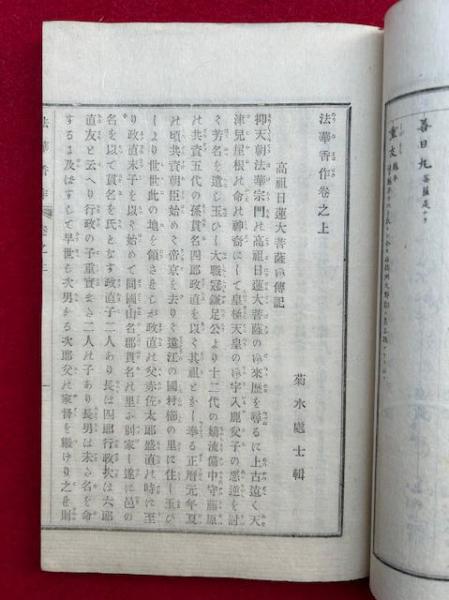 善日丸 菩薩是ナリ
重忠
法華香作卷之上
高祖日蓮大菩薩御傳記
菊水處士輯
抑天朝法華宗門の高祖日蓮大菩薩の御來歴を尋るに上古遠く天
津兒屋根の命の神裔にして皇極天皇の御宇入鹿父子の惡逆を討
て芳名を遺し玉ひし大職冠鎌足公より十二代の嫡流備中守藤原
の共資五代の孫貫名四郎政直を以く其祖とかし奉る正暦元年夏
の頃共資朝臣始めて帝京を去りて遠江の國村櫛の里に住し玉ひ
しより世世此の地を領さをしが政直の父赤佐太郎盛直の時に至
り政直末子を以く始めて同國山名郡貫名の里に別家し遂に邑の
名を以て貫名を氏となす政直子二人あり長は四郎行政次は六郎
直友と云へり行政の子重實まさ二人の子あり長男は未さ名を命
するに及ばずして早世を次男かる次郎父の家督を繼けり之を則
法華香作 卷之上